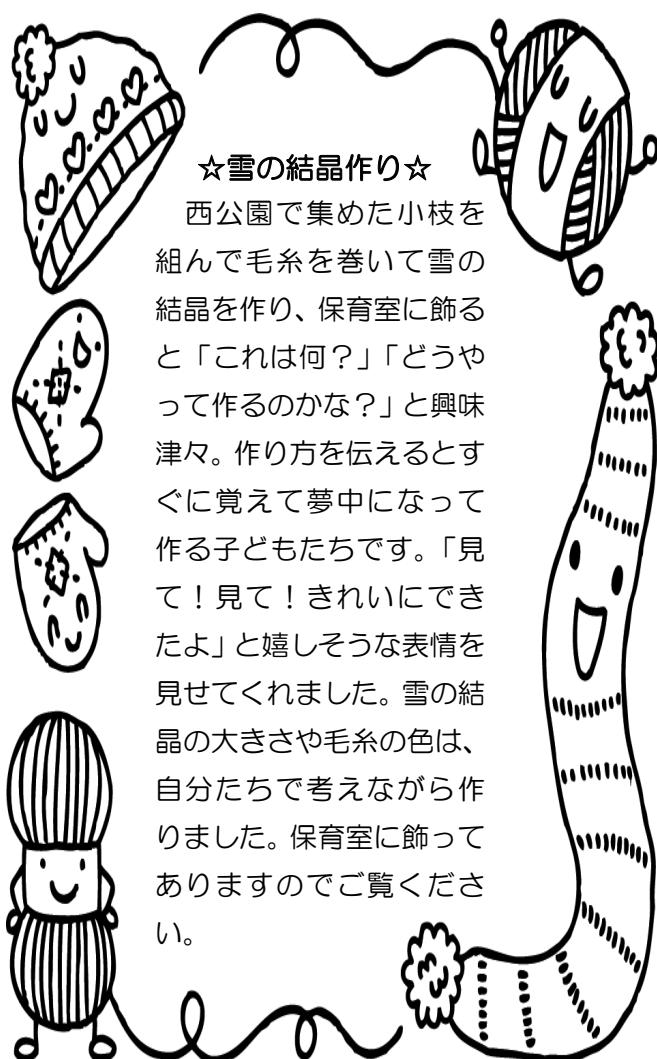 ☆雪の結晶作り☆
西公園で集めた小枝を
組んで毛糸を巻いて雪の
結晶を作り、保育室に飾る
と「これは何？」「どうや
って作るのかな？」と興味
津々。作り方を伝えるとす
ぐに覚えて夢中になって
作る子どもたちです。「見
て！見て！きれいにでき
たよ」と嬉しそうな表情を
見せてくれました。雪の結
晶の大きさや毛糸の色は、
自分たちで考えながら作
りました。保育室に飾って
ありますのでご覧くださ
い。